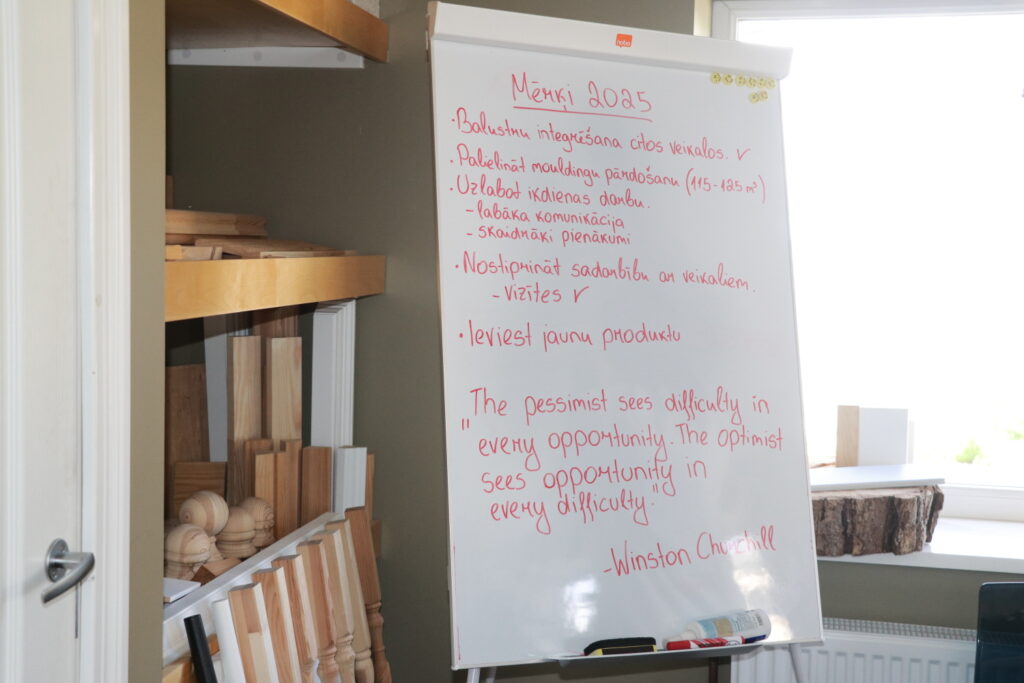 nobo
Mērķi 2025
• Balustru integrēšana citos veikalos. ✓
• Palielināt mouldingu pārdošanu (115-125 m³)
• Uzlabot ikdienas darbu.
- labāka komunikācija
- skaidrāki pienākumi
• Nostiprināt sadarbību ar veikaliem.
- vizītes ✓
• Ieviest jaunu produktu
"The pessimist sees difficulty in
every opportunity. The optimist
sees opportunity in
every difficulty."
- Winston Churchill